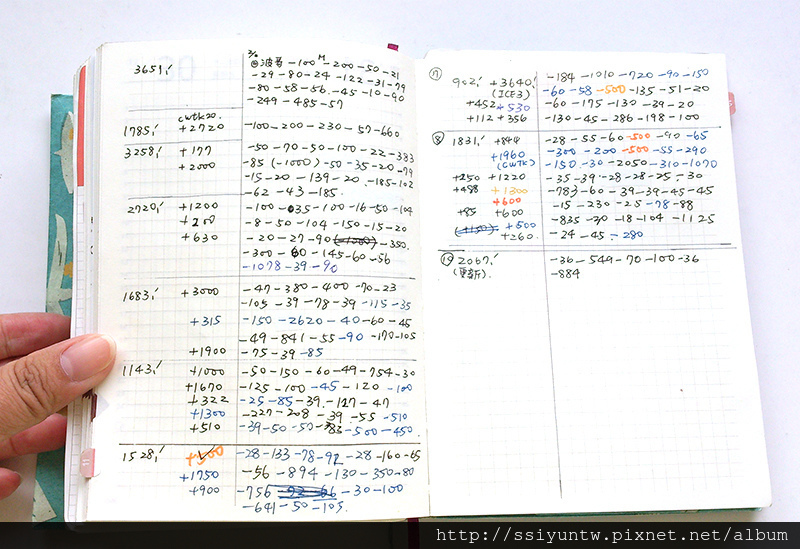 3651,
-100 -200 -50 -21
-29 -80 -24 -122 -31 -79
-80 -58 -56 -45 -10 -90
-249 -485 -57
cwtk20.
1785, +2720 -100 -200 -230 -57 -660
3258, +177 -50 -70 -50 -100 -22 -383
+2000 -85 (-1000) -50 -35 -20 -79
-15 -20 -139 -20 -185 -102
-62 -43 -185.
2720, +1200 -100 -35 -100 -16 -50 -104
+200 -8 -50 -104 -150 -15 -20
+630 -20 -27 -90 -350.
-300 -60 -145 -60 -56
-1078 -39 -90
1683, +3000 -47 -380 -400 -70 -23
-105 -39 -78 -39 -115 -35
+315 -150 -2620 -40 -60 -45
-49 -841 -55 -90 -170 -105
+1900 -75 -39 -85
1143, +1000 -50 -150 -60 -49 -754 -30
+1670 -125 -100 -45 -120 -100
+322 -25 -85 -39 -127 -47
+1300 -227 -208 -39 -55 -510
+510 -39 -50 -50 -83 -500 -450.
1528, +500 -28 -133 -78 -92 -28 -160 -65
+1750 -56 -894 -130 -350 -80
+900 -756 -30 -100
-641 -50 -105.
⑰ 902, +3640 -184 -1010 -720 -90 -150
(ICE3) -60 -58 -500 -135 -51 -20
+452 +530 -60 -175 -130 -39 -20
+112 +356 -130 -45 -286 -198 -100
⑱ 1831, +844 -28 -55 -60 -500 -90 -65
+1960 -300 -200 -500 -55 -290
(CWTK) -150 -30 -2050 -310 -1070
+250 +1220 -35 -39 -28 -28 -25 -30
+488 +1300 -783 -60 -39 -39 -45 -45
+600 -15 -230 -25 -78 -88
+85 +600 -835 -20 -18 -104 -1125
+500 -24 -45 -280
+260.
⑲ 2067, -36 -549 -70 -100 -36
(更新). -884
http://ssiyuntw.pixnet.net/album